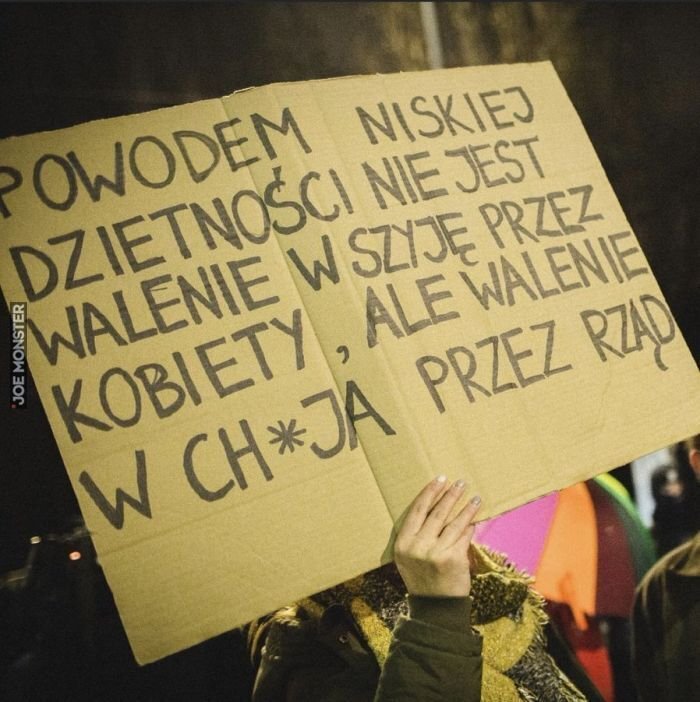 POWODEM NISKIEJ
DZIETNOŚCI NIE JEST
WALENIE W SZYJĘ PRZEZ
KOBIETY, ALE WALENIE
W CH*JA PRZEZ RZĄD
JOE MONSTER